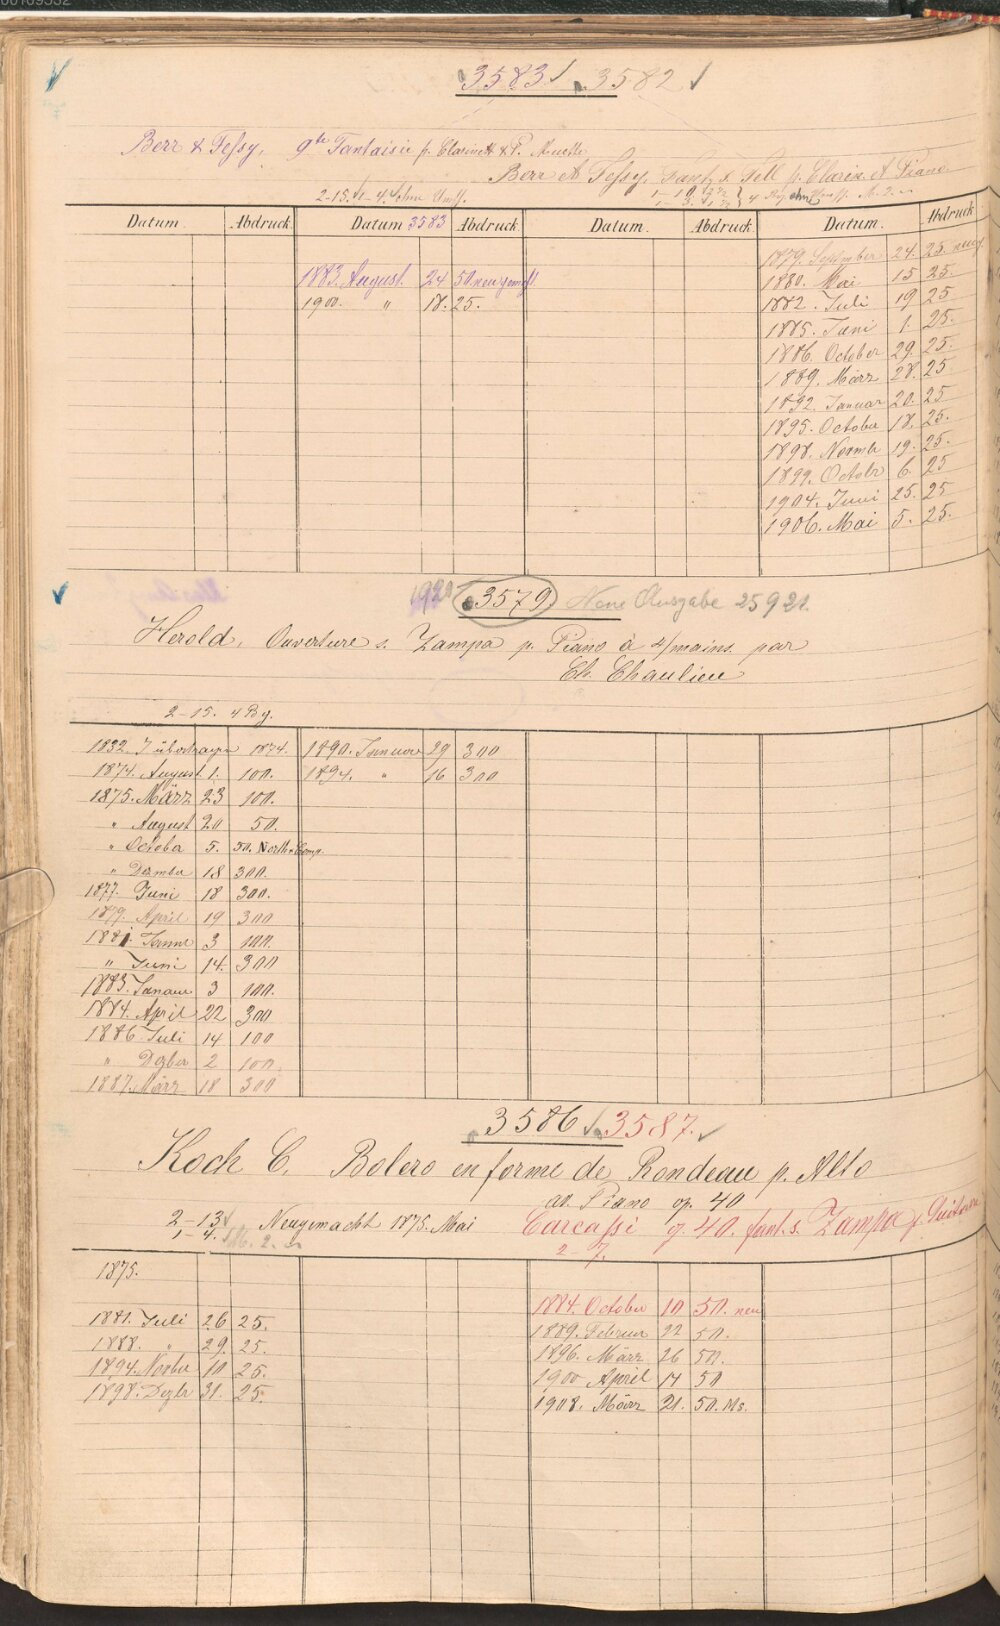 3583 3582
Berr & Fessy, 9te Fantaisie p. Clarinett & P. Muette
Berr et Fessy, Fant. s. Tell p. Clarin. et Piano
2-15. 1-4. ohne
Datum. Abdruck. Datum 3583 Abdruck. Datum. Abdruck. Datum. Abdruck
1879. September 24. 25. neug.
1883. August. 24 50 neu gemcht.
1880. Mai 15 25.
1900. " 18. 25.
1882. Juli 19 25
1885. Juni 1. 25.
1886. October 29. 25.
1889. März 28. 25
1892. Januar 20. 25
1895. October 18. 25.
1898. Novmb 19. 25.
1899. Octobr 6. 25
1904. Juni 25. 25
1906. Mai 5. 25.
1920 3579 Neue Ausgabe 25 9 21.
Herold, Ouverture s. Zampa p. Piano à 4/mains. par
Ch. Chaulieu
2-15. 4 Bg.
1832. J übertragen 1874. 1890. Januar 29 300
1874. August 1. 100. 1894. " 16 300
1875. März 23 100.
" August 20 50.
" October 5. 50. North. Comp.
" Dezember 18 300.
1877. Juni 18 300.
1879. April 19 300
1881. Januar 3 100.
" Juni 14. 300
1883. Januar 3 100.
1884. April 22 300
1886. Juli 14 100
" Dezber 2 100.
1887. März 18 300
3586 3587.
Koch C. Bolero en forme de Rondeau p. Alto
av. Piano op. 40
2-13 Neugemacht 1875. Mai Carcassi op. 40. fant. s. Zampa p. Guitare
1-4. M. 2. 2-7.
1875.
1884. October 10 50. neu
1881. Juli 26 25. 1889. Februar 22 50.
1888. " 29. 25. 1896. März 26 50.
1894. Novber 10 25. 1900 April 14 50
1898. Dezbr 31. 25. 1908. März 21. 50. Ms.